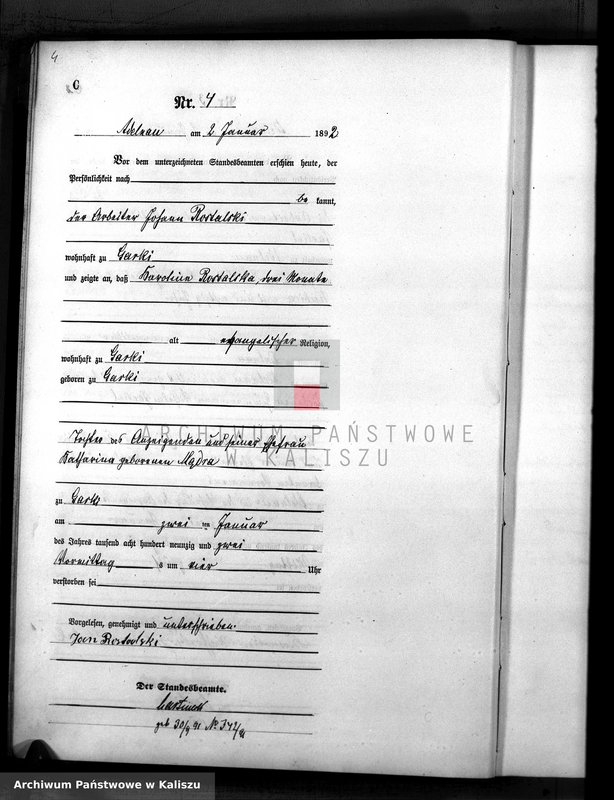 4
C
Nr. 4
Adelnau am 2 Januar 1892
Vor dem unterzeichneten Standesbeamten erschien heute, der
Persönlichkeit nach
be kannt,
der Arbeiter Johann Rostalski
wohnhaft zu Garki
und zeigte an, daß Karoline Rostalska, drei Monate
alt evangelischer Religion,
wohnhaft zu Garki
geboren zu Garki
Tochter des Anzeigenden und seiner Ehefrau
Katharina geborenen Mądra
zu Garki
am zwei ten Januar
des Jahres tausend acht hundert neunzig und zwei
Vormittag s um vier Uhr
verstorben sei
Vorgelesen, genehmigt und unterschrieben.
Jan Rostalski
Der Standesbeamte.
geb 30/9 91 No 342/91
ARCHIWUM PAŃSTWOWE
W KALISZU
Archiwum Państwowe w Kaliszu